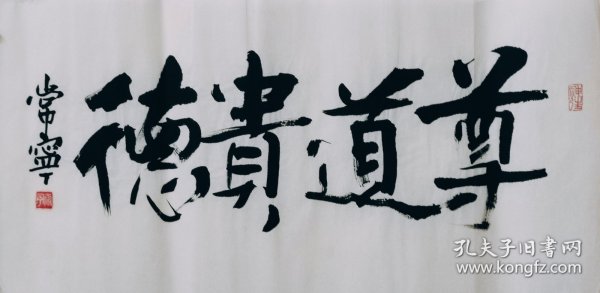 尊道貴德
常寧
孔夫子旧書网
www.kongfz.com